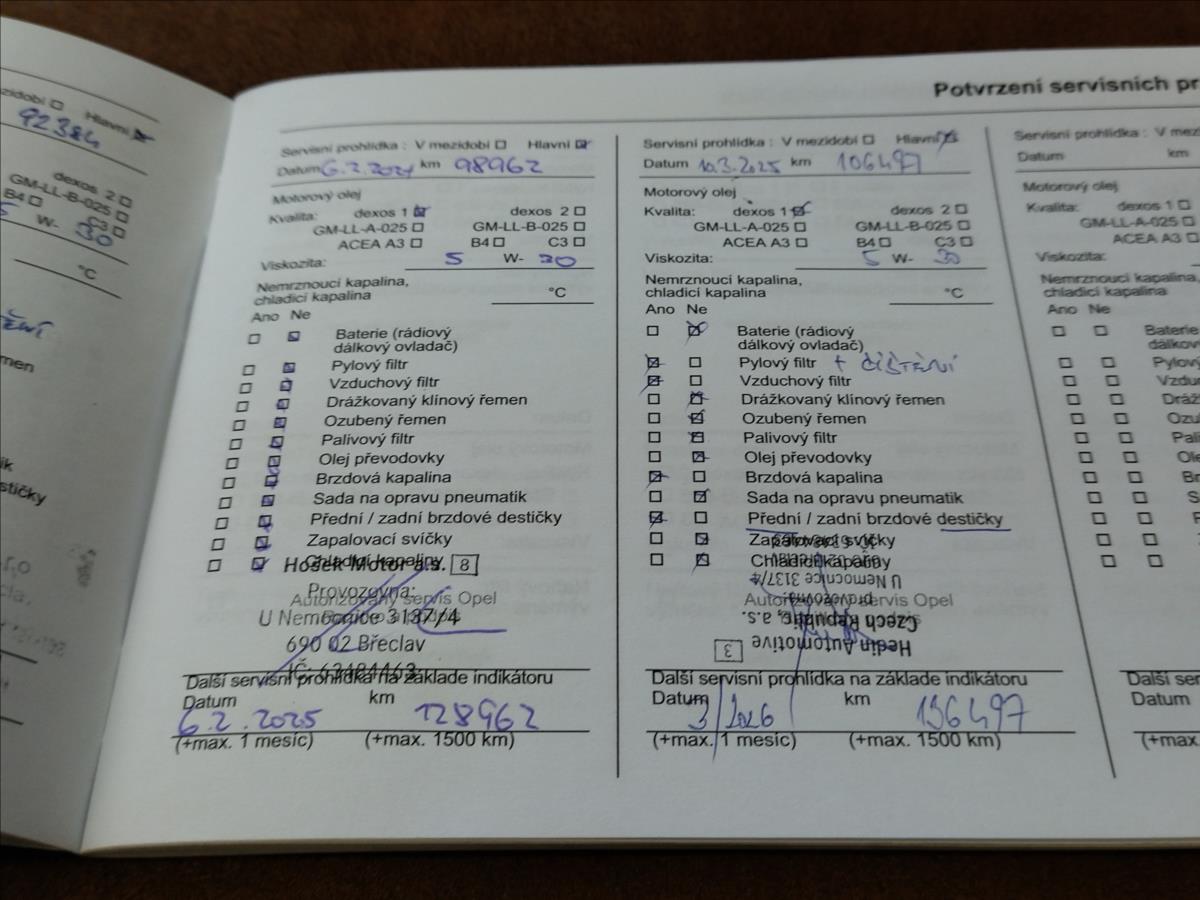 zidobí ☐ Hlavní ☒
92384
dexos 2 ☐
GM-LL-B-025 ☐
B4 ☐ C3 ☐
5 W- 30
°C
men
stičky
Potvrzení servisních pr
Servisní prohlídka : V mezidobí ☐ Hlavní ☒
Datum 6.2.2024 km 98962
Motorový olej
Kvalita: dexos 1 ☒ dexos 2 ☐
GM-LL-A-025 ☐ GM-LL-B-025 ☐
ACEA A3 ☐ B4 ☐ C3 ☐
Viskozita: 5 W- 30
Nemrznoucí kapalina,
chladicí kapalina °C
Ano Ne
☐ ☒ Baterie (rádiový
dálkový ovladač)
☐ ☒ Pylový filtr
☐ ☒ Vzduchový filtr
☐ ☒ Drážkovaný klínový řemen
☐ ☒ Ozubený řemen
☐ ☒ Palivový filtr
☐ ☒ Olej převodovky
☐ ☒ Brzdová kapalina
☐ ☒ Sada na opravu pneumatik
☐ ☒ Přední / zadní brzdové destičky
☐ ☒ Zapalovací svíčky
☐ ☒ Chladicí kapaliny
Hošek Motor a.s. 8
Provozovna:
Autorizovaný servis Opel
U Nemocnice 3137/4
690 02 Břeclav
IČ: 63484463
Další servisní prohlídka na základe indikátoru
Datum km
6.2.2025 128962
(+max. 1 mesíc) (+max. 1500 km)
Servisní prohlídka : V mezidobí ☐ Hlavní ☒
Datum 10.3.2025 km 106497
Motorový olej
Kvalita: dexos 1 ☒ dexos 2 ☐
GM-LL-A-025 ☐ GM-LL-B-025 ☐
ACEA A3 ☐ B4 ☐ C3 ☐
Viskozita: 5 W- 30
Nemrznoucí kapalina,
chladicí kapalina °C
Ano Ne
☐ ☒ Baterie (rádiový
dálkový ovladač)
☒ ☐ Pylový filtr + ČIŠTĚNÍ
☒ ☐ Vzduchový filtr
☐ ☒ Drážkovaný klínový řemen
☐ ☒ Ozubený řemen
☐ ☒ Palivový filtr
☐ ☒ Olej převodovky
☒ ☐ Brzdová kapalina
☐ ☒ Sada na opravu pneumatik
☒ ☐ Přední / zadní brzdové destičky
☐ ☒ Zapalovací svíčky
☐ ☒ Chladicí kapaliny
U Nemocnice 3137/4
provozovna:
Autorizovaný servis Opel
Czech Republic, a.s.
Hedin Automotive 3
Další servisní prohlídka na základe indikátoru
Datum km
3/2026 136497
(+max. 1 mesíc) (+max. 1500 km)
Servisní prohlídka : V mez
Datum km
Motorový olej
Kvalita: dexos 1 ☐
GM-LL-A-025 ☐
ACEA A3 ☐
Viskozita:
Nemrznoucí kapalina,
chladicí kapalina
Ano Ne
☐ ☐ Baterie
dálkov
☐ ☐ Pylový
☐ ☐ Vzdu
☐ ☐ Dráž
☐ ☐ Ozu
☐ ☐ Pali
☐ ☐ Ole
☐ ☐ Br
☐ ☐ Sa
Další ser
Datum
(+max